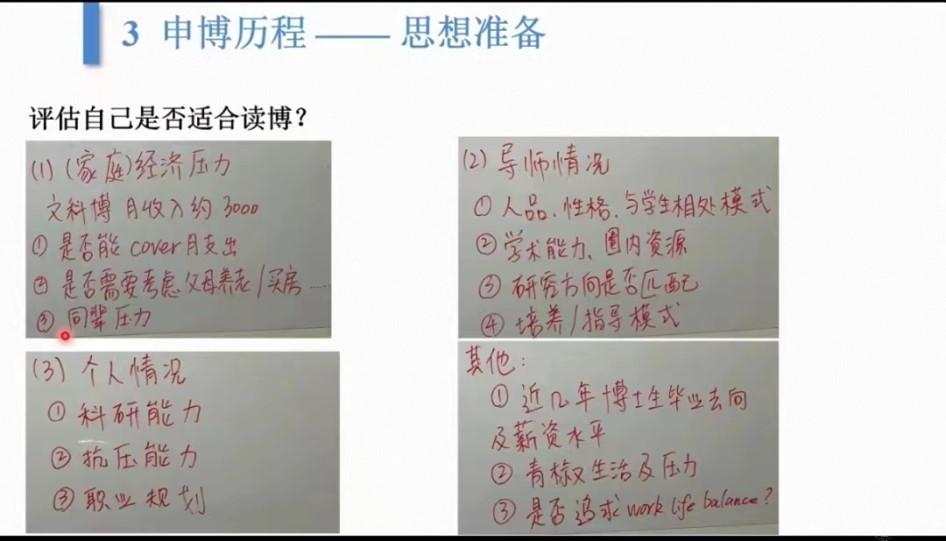 3 申博历程 —— 思想准备
评估自己是否适合读博?
(1) (家庭)经济压力
文科博 月收入约 3000
① 是否能 cover 月支出
② 是否需要考虑 父母养老/买房……
③ 同辈压力
(2) 导师情况
① 人品、性格、与学生相处模式
② 学术能力、圈内资源
③ 研究方向是否匹配
④ 培养/指导模式
(3) 个人情况
① 科研能力
② 抗压能力
③ 职业规划
其他:
① 近几年博士生毕业去向
及薪资水平
② 青椒生活及压力
③ 是否追求 work life balance?